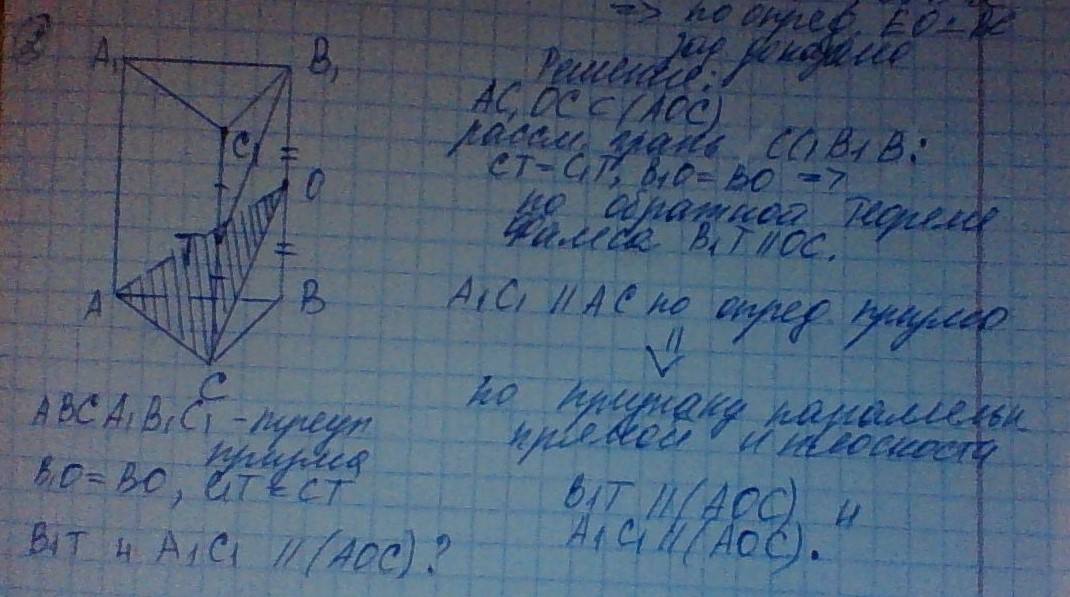 => по опред. EO ⊥ DC
зад. доказана
2
A₁
B₁
C₁
O
T
A
B
C
ABCA₁B₁C₁ - треуг
призма
B₁O = BO, C₁T = CT
B₁T и A₁C₁ || (AOC)?
Решение:
AC, OC ⊂ (AOC)
рассм. грань CC₁B₁B:
CT = C₁T, B₁O = BO =>
по обратной теореме
Фалеса B₁T || OC.
A₁C₁ || AC по опред призмы
⇓
по признаку параллельн
прямой и плоскости
B₁T || (AOC) и
A₁C₁ || (AOC).